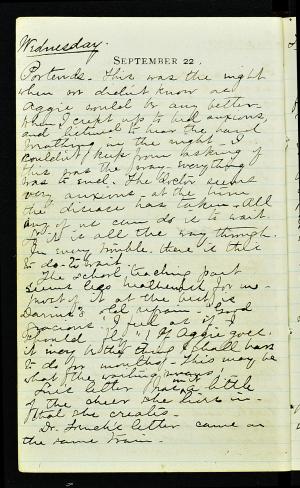 Wednesday.
SEPTEMBER 22.
Portends. This was the night
when we didn't know as
Aggie would be any better.
When I crept up to bed anxious,
and listened to hear the hard
breathing in the night - I
couldn't keep from asking if
this was the way everything
was to end. The doctor seems
very anxious at the turn
the disease has taken. All
any of us can do is to wait.
It is all the way through.
In every trouble, there is this
to do - to wait
The school teaching part
seems less for me.
most of it at the best is
old refrain. Good
Gracious! I feel as if I
should " " If Aggie goes.
it may be the thing I shall have
to do for months. This may be
what the means!
letter little
of the cheer she lives in.
that she creates.
Dr. letter came on
the same train.